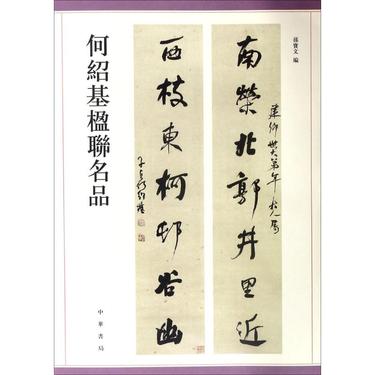 孫寶文 編
南榮北郭井里近
西枝東柯邨谷幽
子貞何紹基
何紹基楹聯名品
中華書局